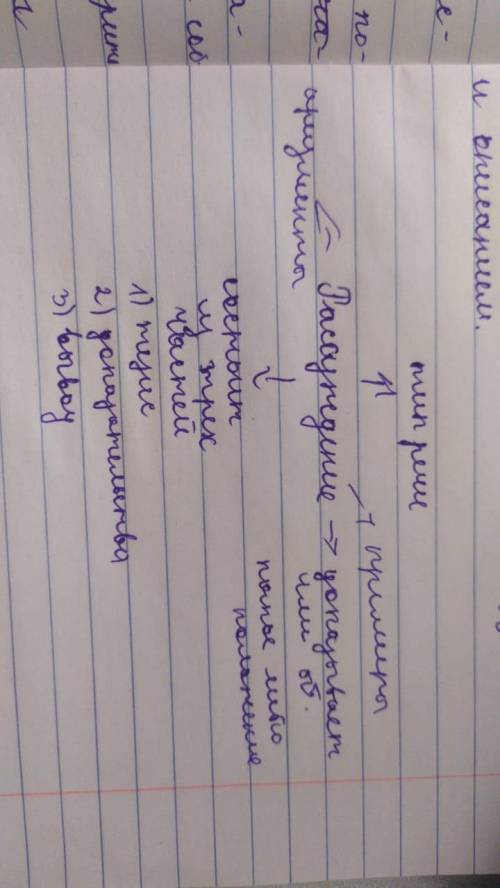 и описанием.
тип речи
примеры
аргументы
Рассуждение → доказывает
или об.
какое либо
положение
состоит
из трех
частей
1) тезис
2) доказательства
3) вывод